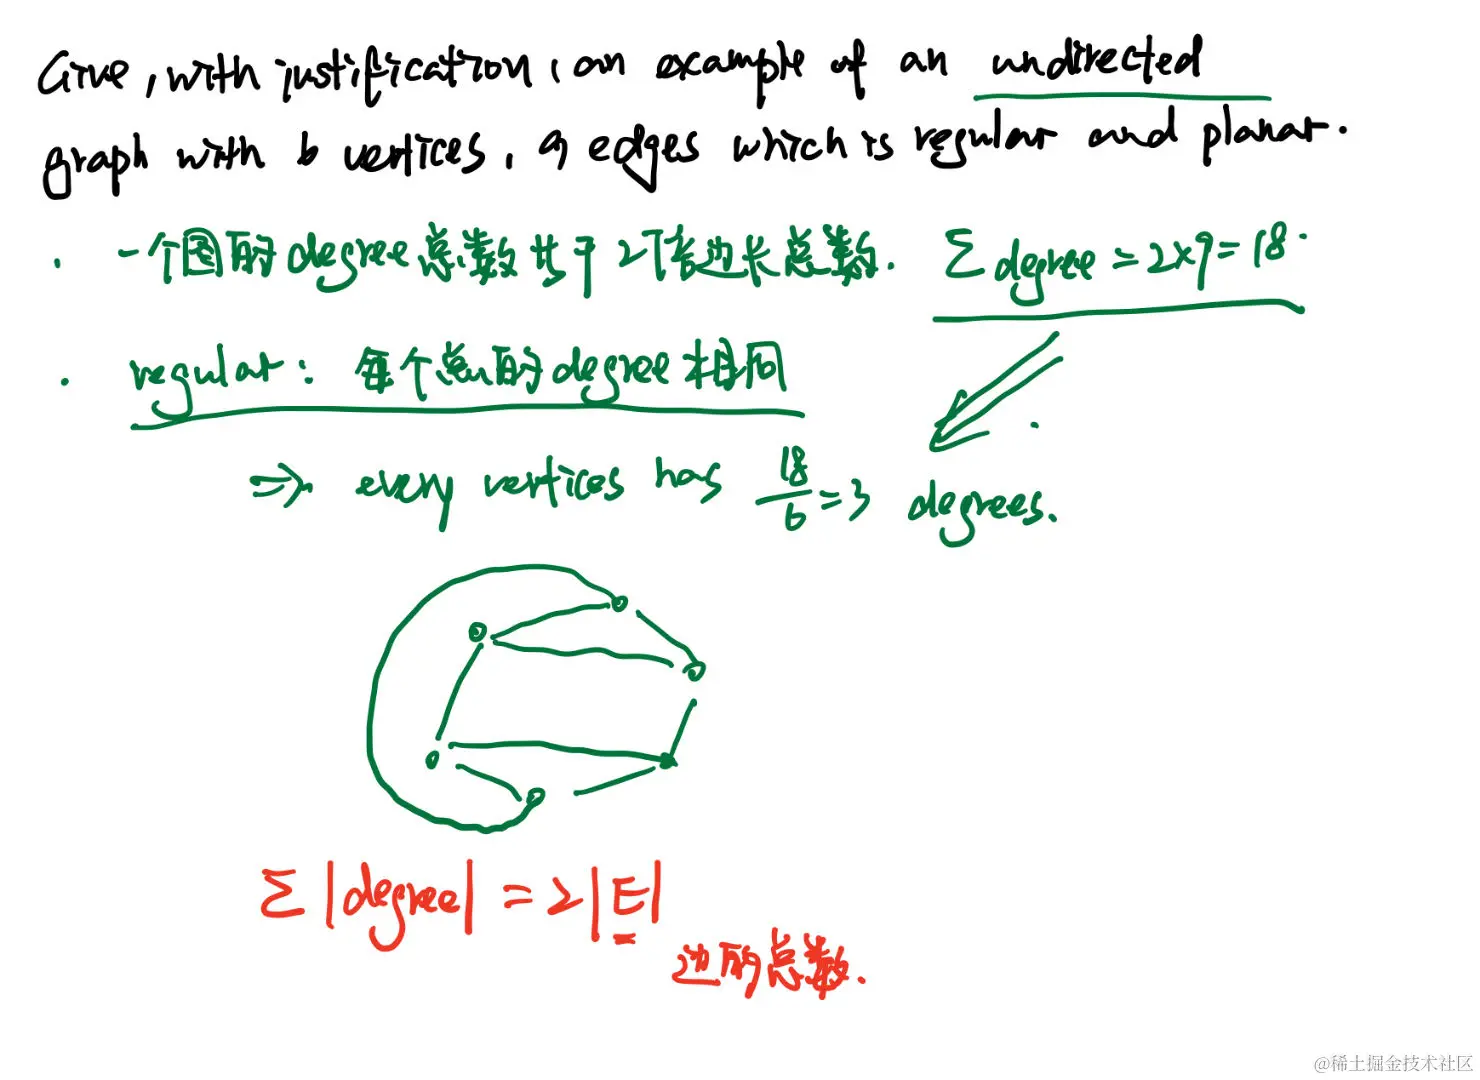 Give, with justification, an example of an undirected
graph with 6 vertices, 9 edges which is regular and planar.
· 一个图的degree总数共于2倍边长总数. Σdegree=2×9=18.
· regular: 每个点的degree相同
=> every vertices has 18/6=3 degrees.
Σ|degree|=2|E|
边的总数.
@稀土掘金技术社区